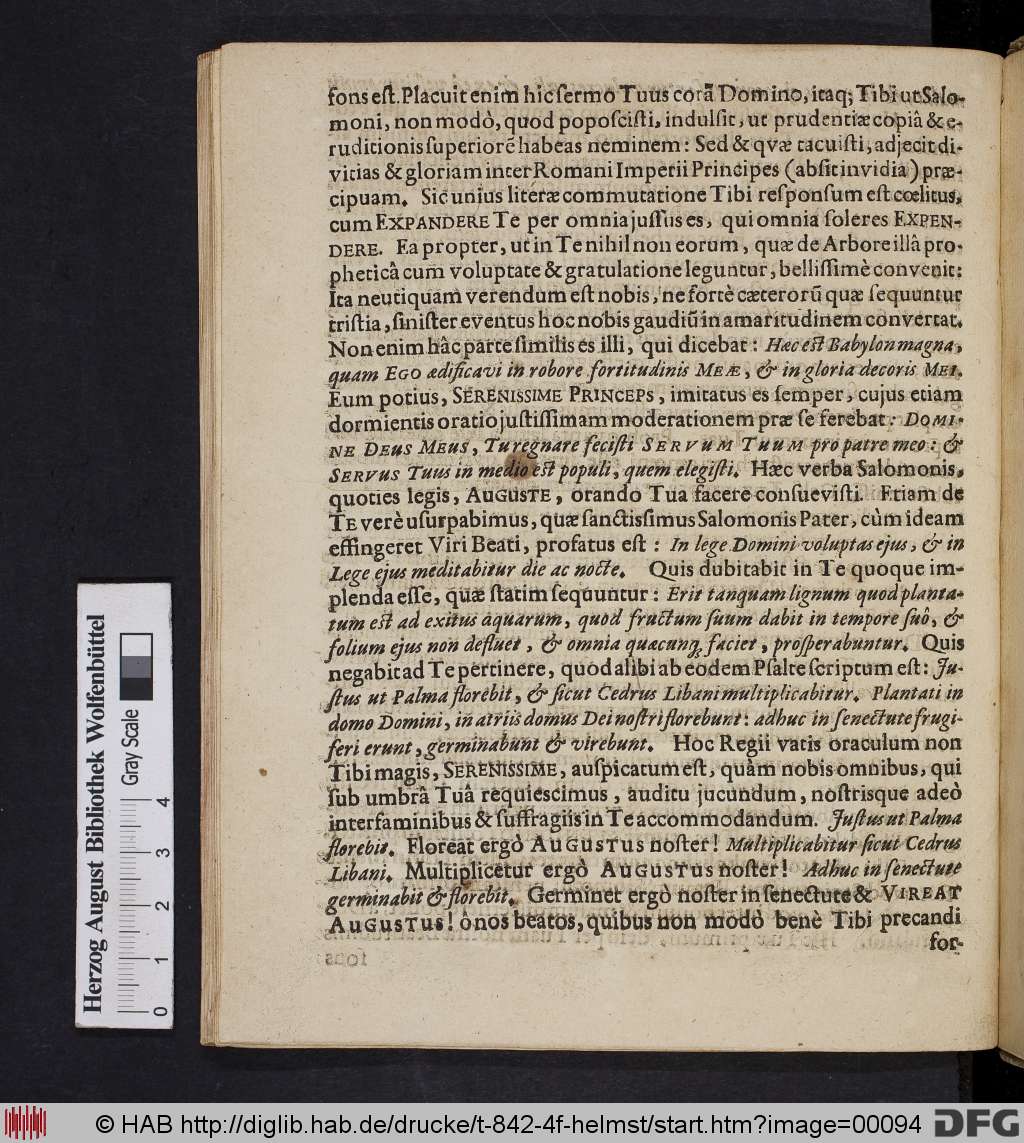 fons est. Placuit enim hic sermo Tuus corã Domino, itaq; Tibi ut Salo-
moni, non modò, quod poposcisti, indulsit, ut prudentiæ copiâ & e-
ruditionis superiorẽ habeas neminem: Sed & qvæ tacuisti, adjecit di-
vitias & gloriam inter Romani Imperii Principes (absit invidia) præ-
cipuam. Sic unius literæ commutatione Tibi responsum est cœlitus,
cum EXPANDERE Te per omnia jussus es, qui omnia soleres EXPEN-
DERE. Ea propter, ut in Te nihil non eorum, quæ de Arbore illâ pro-
pheticâ cum voluptate & gratulatione leguntur, bellissimè convenit:
Ita neutiquam verendum est nobis, ne fortè cæterorũ quæ sequuntur
tristia, sinister eventus hoc nobis gaudiũ in amaritudinem convertat.
Non enim hâc parte similis es illi, qui dicebat: Hæc est Babylon magna,
quam EGO ædificavi in robore fortitudinis MEÆ, & in gloria decoris MEI.
Eum potius, SERENISSIME PRINCEPS, imitatus es semper, cujus etiam
dormientis oratio justissimam moderationem præ se ferebat: DOMI-
NE DEUS MEUS, Tu regnare fecisti SERVUM TUUM pro patre meo: &
SERVUS TUUS in medio est populi, quem elegisti. Hæc verba Salomonis,
quoties legis, AUGUSTE, orando Tua facere consuevisti. Etiam de
TE verè usurpabimus, quæ sanctissimus Salomonis Pater, cùm ideam
effingeret Viri Beati, profatus est: In lege Domini voluptas ejus, & in
Lege ejus meditabitur die ac nocte. Quis dubitabit in Te quoque im-
plenda esse, quæ statim sequuntur: Erit tanquam lignum quod planta-
tum est ad exitus aquarum, quod fructum suum dabit in tempore suô, &
folium ejus non defluet, & omnia quæcunq; faciet, prosperabuntur. Quis
negabit ad Te pertinere, quod alibi ab eodem Psalte scriptum est: Ju-
stus ut Palma florebit, & sicut Cedrus Libani multiplicabitur. Plantati in
domo Domini, in atriis domus Dei nostri florebunt: adhuc in senectute frugi-
feri erunt, germinabunt & virebunt. Hoc Regii vatis oraculum non
Tibi magis, SERENISSIME, auspicatum est, quàm nobis omnibus, qui
sub umbrâ Tuâ requiescimus, auditu jucundum, nostrisque adeò
interfaminibus & suffragiis in Te accommodandum. Justus ut Palma
florebit. Floreat ergò AUGUSTUS noster! Multiplicabitur sicut Cedrus
Libani. Multiplicetur ergò AUGUSTUS noster! Adhuc in senectute
germinabit & florebit. Germinet ergò noster in senectute & VIREAT
AUGUSTUS! ô nos beatos, quibus non modò benè Tibi precandi
for-
Herzog August Bibliothek Wolfenbüttel
Gray Scale
0 1 2 3 4
© HAB http://diglib.hab.de/drucke/t-842-4f-helmst/start.htm?image=00094
DFG